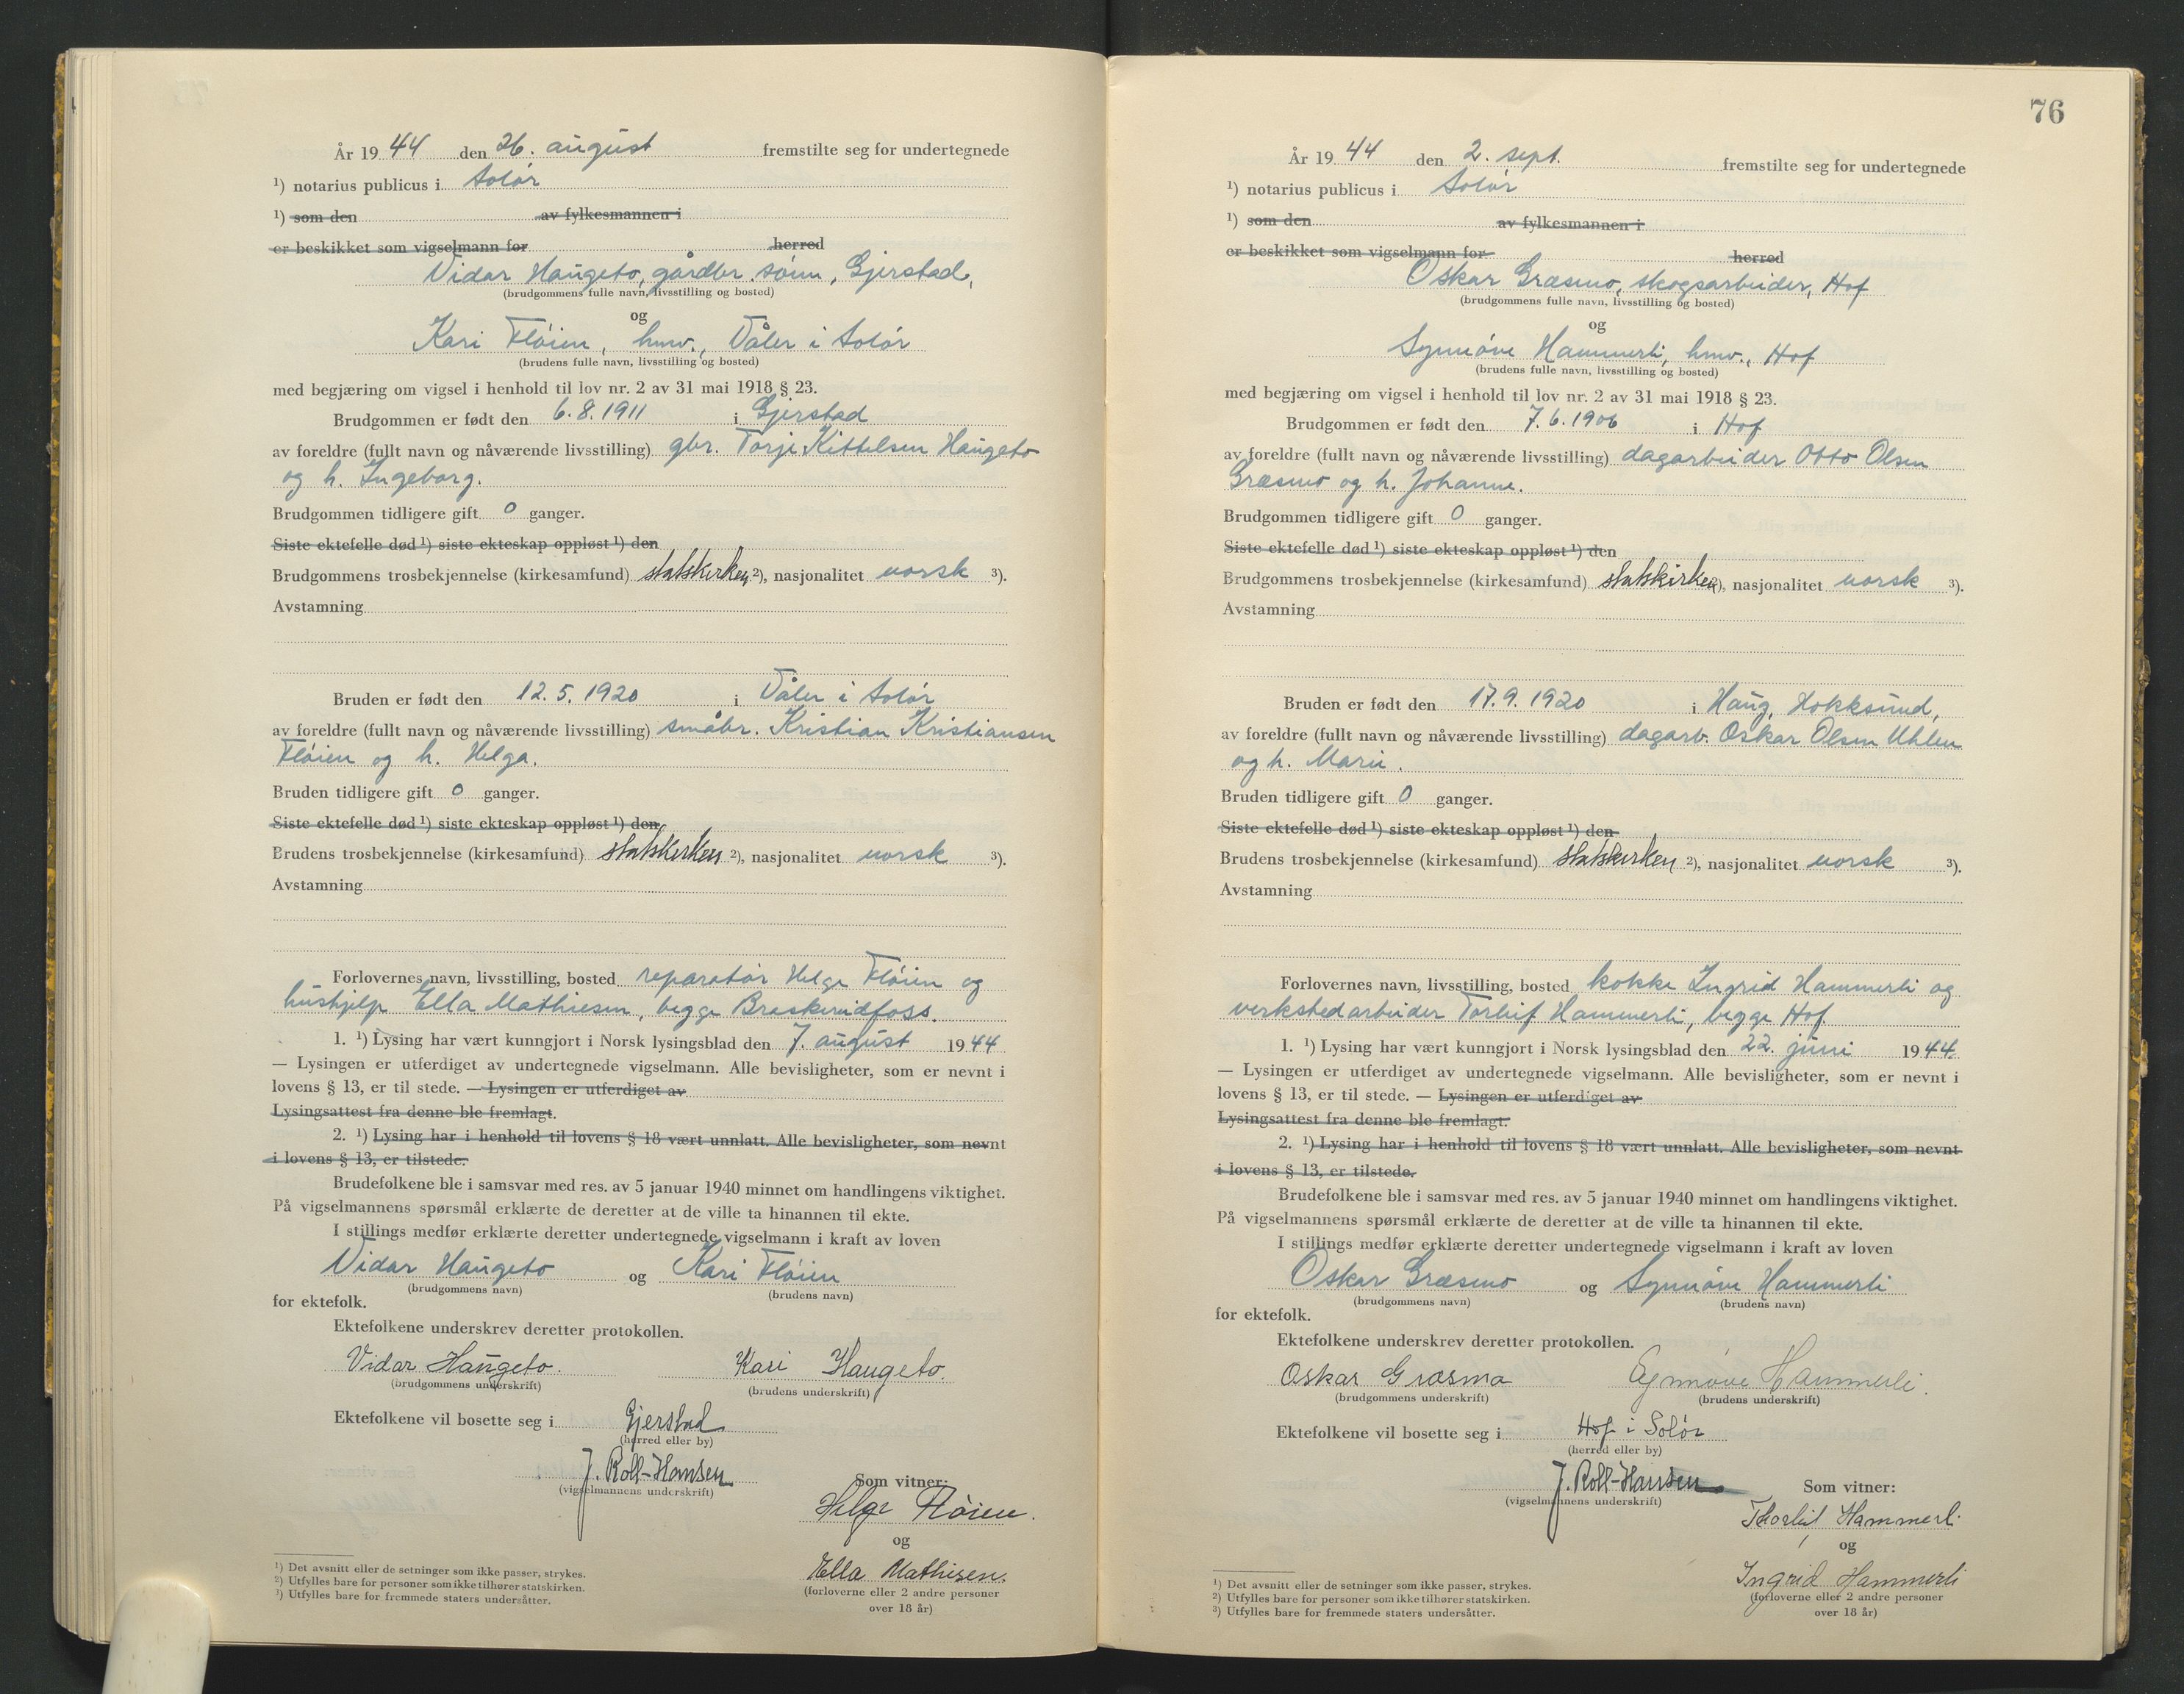 År 1944 den 26. august fremstilte seg for undertegnede
¹) notarius publicus i Solør
¹) som den av fylkesmannen i
er beskikket som vigselmann for herred
Vidar Haugeto, gårdbr. sønn, Gjerstad,
(brudgommens fulle navn, livsstilling og bosted)
og
Kari Fløien, hmv., Våler i Solør
(brudens fulle navn, livsstilling og bosted)
med begjæring om vigsel i henhold til lov nr. 2 av 31 mai 1918 § 23.
Brudgommen er født den 6.8.1911 i Gjerstad
av foreldre (fullt navn og nåværende livsstilling) gbr. Torje Kittelsen Haugeto
og h. Ingeborg.
Brudgommen tidligere gift 0 ganger.
Siste ektefelle død ¹) siste ekteskap oppløst ¹) den
Brudgommens trosbekjennelse (kirkesamfund) statskirken ²), nasjonalitet norsk ³).
Avstamning
Bruden er født den 12.5.1920 i Våler i Solør
av foreldre (fullt navn og nåværende livsstilling) småbr. Kristian Kristiansen
Fløien og h. Helga.
Bruden tidligere gift 0 ganger.
Siste ektefelle død ¹) siste ekteskap oppløst ¹) den
Brudens trosbekjennelse (kirkesamfund) statskirken ²), nasjonalitet norsk ³).
Avstamning
Forlovernes navn, livsstilling, bosted reparatør Helge Fløien og
hushjelp Ella Mathiesen, begge Braskereidfoss.
1. ¹) Lysing har vært kunngjort i Norsk lysingsblad den 7. august 1944
— Lysingen er utferdiget av undertegnede vigselmann. Alle bevisligheter, som er nevnt i
lovens § 13, er til stede. — Lysingen er utferdiget av
Lysingsattest fra denne ble fremlagt.
2. ¹) Lysing har i henhold til lovens § 18 vært unnlatt. Alle bevisligheter, som nevnt
i lovens § 13, er tilstede.
Brudefolkene ble i samsvar med res. av 5 januar 1940 minnet om handlingens viktighet.
På vigselmannens spørsmål erklærte de deretter at de ville ta hinannen til ekte.
I stillings medfør erklærte deretter undertegnede vigselmann i kraft av loven
Vidar Haugeto og Kari Fløien
(brudgommens navn) (brudens navn)
for ektefolk.
Ektefolkene underskrev deretter protokollen.
Vidar Haugeto. Kari Haugeto.
(brudgommens underskrift) (brudens underskrift)
Ektefolkene vil bosette seg i Gjerstad
(herred eller by)
J. Roll-Hansen
(vigselmannens underskrift)
Som vitner:
Helge Fløien.
og
Ella Mathisen.
(forloverne eller 2 andre personer
over 18 år)
¹) Det avsnitt eller de setninger som ikke passer, strykes.
²) Utfylles bare for personer som ikke tilhører statskirken.
³) Utfylles bare for fremmede staters undersåtter.
76
År 1944 den 2. sept. fremstilte seg for undertegnede
¹) notarius publicus i Solør
¹) som den av fylkesmannen i
er beskikket som vigselmann for herred
Oskar Græsmo, skogsarbeider, Hof
(brudgommens fulle navn, livsstilling og bosted)
og
Synnøve Hammerli, hmv., Hof
(brudens fulle navn, livsstilling og bosted)
med begjæring om vigsel i henhold til lov nr. 2 av 31 mai 1918 § 23.
Brudgommen er født den 7.6.1906 i Hof
av foreldre (fullt navn og nåværende livsstilling) dagarbeider Otto Olsen
Græsmo og h. Johanne.
Brudgommen tidligere gift 0 ganger.
Siste ektefelle død ¹) siste ekteskap oppløst ¹) den
Brudgommens trosbekjennelse (kirkesamfund) statskirken ²), nasjonalitet norsk ³).
Avstamning
Bruden er født den 17.9.1920 i Haug, Hokksund,
av foreldre (fullt navn og nåværende livsstilling) dagarb. Oskar Olsen Uhlen
og h. Marie.
Bruden tidligere gift 0 ganger.
Siste ektefelle død ¹) siste ekteskap oppløst ¹) den
Brudens trosbekjennelse (kirkesamfund) statskirken ²), nasjonalitet norsk ³).
Avstamning
Forlovernes navn, livsstilling, bosted kokke Ingrid Hammerli og
verkstedarbeider Torleif Hammerli, begge Hof
1. ¹) Lysing har vært kunngjort i Norsk lysingsblad den 22. juni 1944.
— Lysingen er utferdiget av undertegnede vigselmann. Alle bevisligheter, som er nevnt i
lovens § 13, er til stede. — Lysingen er utferdiget av
Lysingsattest fra denne ble fremlagt.
2. ¹) Lysing har i henhold til lovens § 18 vært unnlatt. Alle bevisligheter, som nevnt
i lovens § 13, er tilstede.
Brudefolkene ble i samsvar med res. av 5 januar 1940 minnet om handlingens viktighet.
På vigselmannens spørsmål erklærte de deretter at de ville ta hinannen til ekte.
I stillings medfør erklærte deretter undertegnede vigselmann i kraft av loven
Oskar Græsmo og Synnøve Hammerli
(brudgommens navn) (brudens navn)
for ektefolk.
Ektefolkene underskrev deretter protokollen.
Oskar Græsmo Synnøve Hammerli.
(brudgommens underskrift) (brudens underskrift)
Ektefolkene vil bosette seg i Hof i Solør
(herred eller by)
J. Roll-Hansen
(vigselmannens underskrift)
Som vitner:
Thorleif Hammerli
og
Ingrid Hammerli
(forloverne eller 2 andre personer
over 18 år)
¹) Det avsnitt eller de setninger som ikke passer, strykes.
²) Utfylles bare for personer som ikke tilhører statskirken.
³) Utfylles bare for fremmede staters undersåtter.